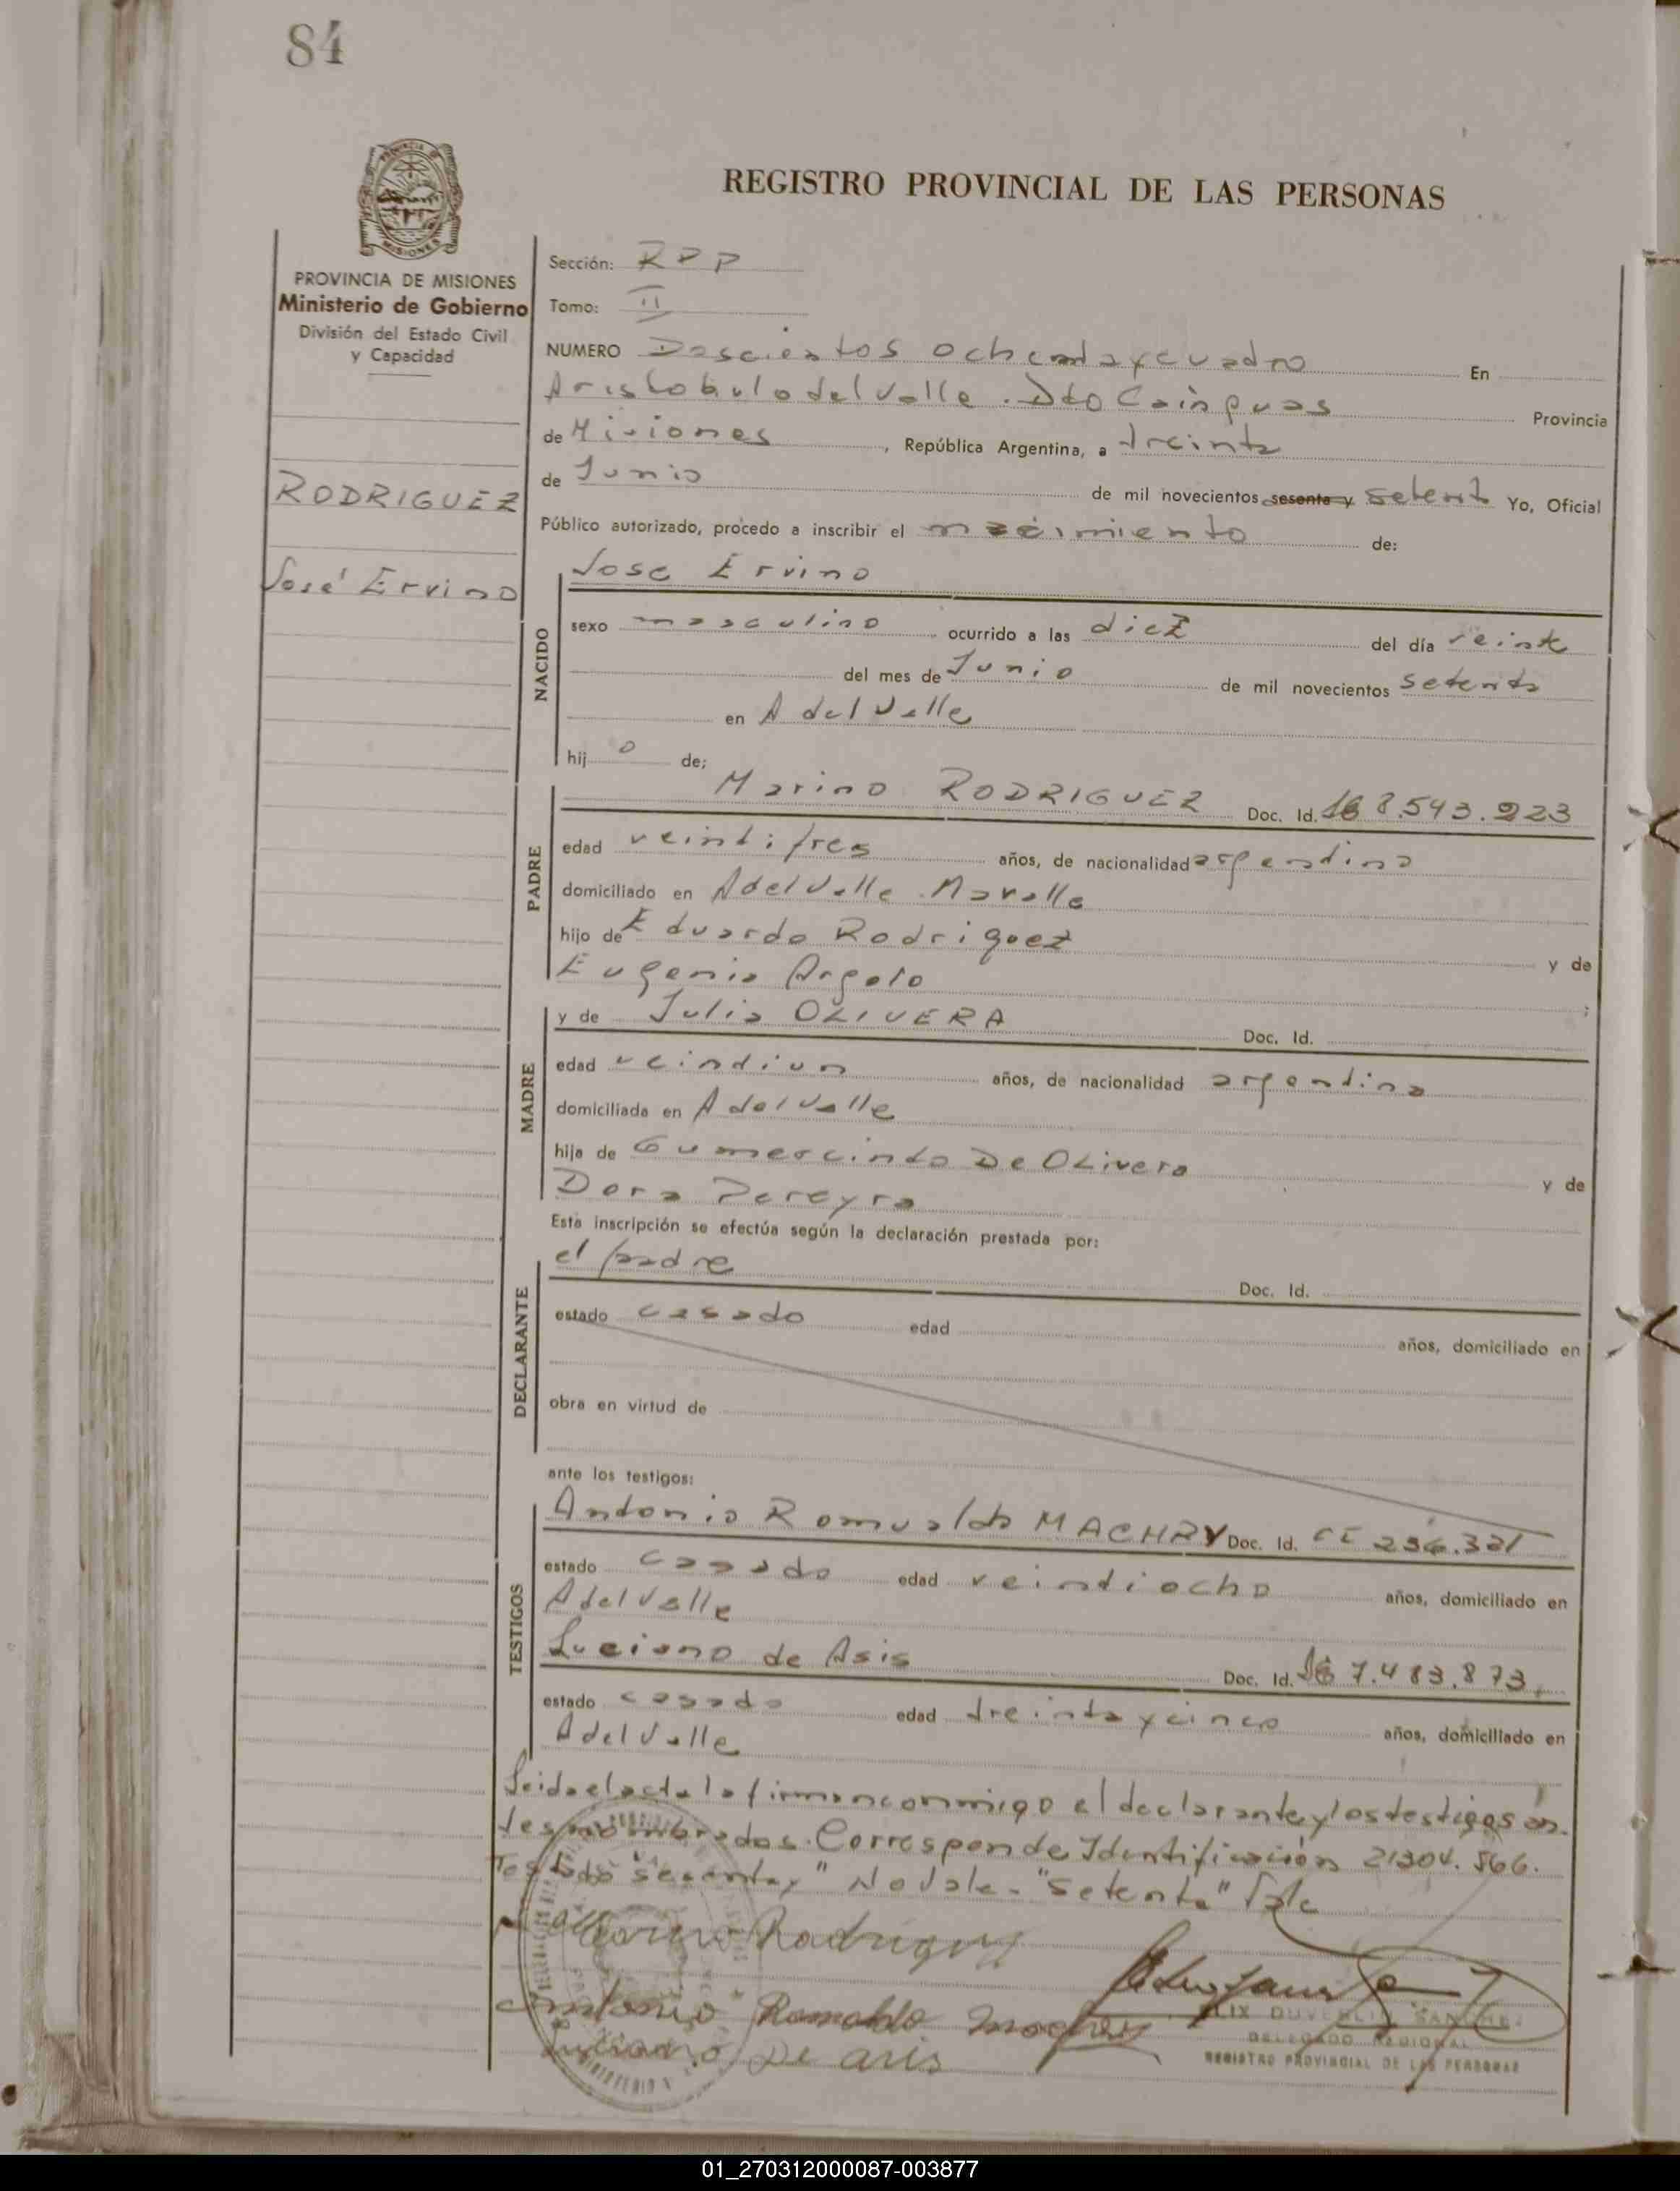 84
REGISTRO PROVINCIAL DE LAS PERSONAS
PROVINCIA DE MISIONES
Ministerio de Gobierno
División del Estado Civil
y Capacidad
RODRIGUEZ
José Ervino
Sección: RPP
Tomo: II
NUMERO Doscientos ochenta y cuatro En
Aristobulo del Valle. Dto Cainguas Provincia
de Misiones, República Argentina, a treinta
de Junio de mil novecientos sesenta y setenta Yo, Oficial
Público autorizado, procedo a inscribir el nacimiento de:
NACIDO
Jose Ervino
sexo masculino ocurrido a las diez del día veinte
del mes de Junio de mil novecientos setenta
en A del Valle
hijo de;
PADRE
Marino RODRIGUEZ Doc. Id. 8.543.923
edad veintitres años, de nacionalidad argentina
domiciliado en A del Valle
hijo de Eduardo Rodriguez y de
Eugenia
MADRE
y de Julia OLIVERA Doc. Id.
edad veintiun años, de nacionalidad argentina
domiciliada en A del Valle
hija de Gumercindo De OLivera y de
Dora Pereyra
Esta inscripción se efectúa según la declaración prestada por:
DECLARANTE
el padre Doc. Id.
estado casado edad años, domiciliado en
obra en virtud de
ante los testigos:
TESTIGOS
Antonio Romualdo MACHRY Doc. Id. CI 256.321
estado casado edad veintiocho años, domiciliado en
A del Valle
Luciano de Asis Doc. Id. 7.483.873
estado casado edad treinta y cinco años, domiciliado en
A del Valle
Leida el acta la firman conmigo el declarante y los testigos an-
tes nombrados. Corresponde Identificación 21304.566.
Testado "sesenta y" No Vale - "setenta" Vale
Marino Rodriguez
Antonio Romaldo Machry
Luciano De asis
DUVERLIZ SANCHEZ
DELEGADO REGIONAL
REGISTRO PROVINCIAL DE LAS PERSONAS
01_270312000087-003877